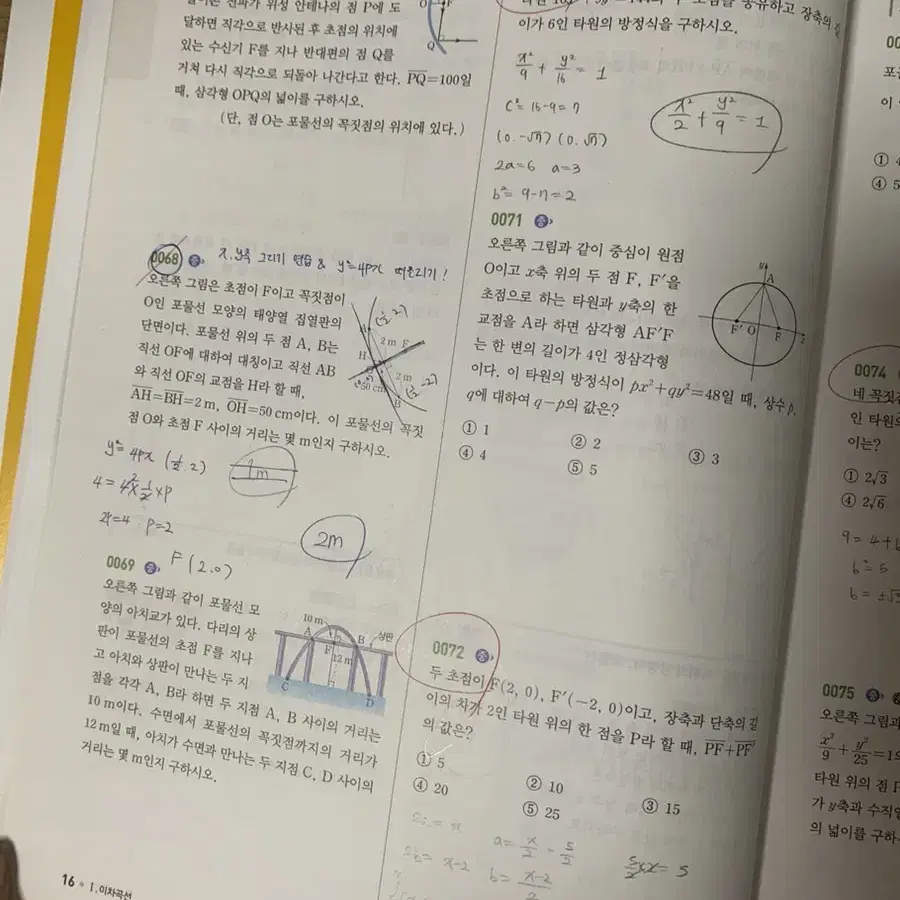 달하면 직각으로 반사된 후 초점의 위치에
있는 수신기 F를 지나 반대편의 점 Q를
거쳐 다시 직각으로 되돌아 나간다고 한다. PQ=100일
때, 삼각형 OPQ의 넓이를 구하시오.
(단, 점 O는 포물선의 꼭짓점의 위치에 있다.)
Q
0068 중
x, y축 그리기 연습 & y²=4px 떠올리기!
오른쪽 그림은 초점이 F이고 꼭짓점이
O인 포물선 모양의 태양열 집열판의
단면이다. 포물선 위의 두 점 A, B는
직선 OF에 대하여 대칭이고 직선 AB
와 직선 OF의 교점을 H라 할 때,
AH=BH=2 m, OH=50 cm이다. 이 포물선의 꼭짓
점 O와 초점 F 사이의 거리는 몇 m인지 구하시오.
(½, 2)
2 m
F
H
2 m
(½, -2)
50 cm
B
y²=4px (½, 2)
1m
4=4×½×p
2p=4 p=2
2m
F(2,0)
0069 중
오른쪽 그림과 같이 포물선 모
양의 아치교가 있다. 다리의 상
판이 포물선의 초점 F를 지나
고 아치와 상판이 만나는 두 지
점을 각각 A, B라 하면 두 지점 A, B 사이의 거리는
10 m이다. 수면에서 포물선의 꼭짓점까지의 거리가
12 m일 때, 아치가 수면과 만나는 두 지점 C, D 사이의
거리는 몇 m인지 구하시오.
10 m
A
B
상판
F
12 m
C
D
16 I. 이차곡선
이가 6인 타원의 방정식을 구하시오.
x²/9 + y²/16 = 1
c²=16-9=7
(0, -√7) (0, √7)
2a=6 a=3
b²=9-7=2
x²/2 + y²/9 = 1
0071 중
오른쪽 그림과 같이 중심이 원점
O이고 x축 위의 두 점 F, F′을
초점으로 하는 타원과 y축의 한
교점을 A라 하면 삼각형 AF′F
는 한 변의 길이가 4인 정삼각형
이다. 이 타원의 방정식이 px²+qy²=48일 때, 상수 p,
q에 대하여 q-p의 값은?
y
A
F′ O F
x
① 1
② 2
③ 3
④ 4
⑤ 5
0072 중
두 초점이 F(2, 0), F′(-2, 0)이고, 장축과 단축의 길
이의 차가 2인 타원 위의 한 점을 P라 할 때, PF+PF′
의 값은?
① 5
② 10
③ 15
④ 20
⑤ 25
2b= x-2
b= x-2/2
0074
네 꼭짓
인 타원의
이는?
① 2√3
④ 2√6
b²=5
0075 중
오른쪽 그림과
x²/9 + y²/25 =1
타원 위의 점 P
가 y축과 수직일
의 넓이를 구하